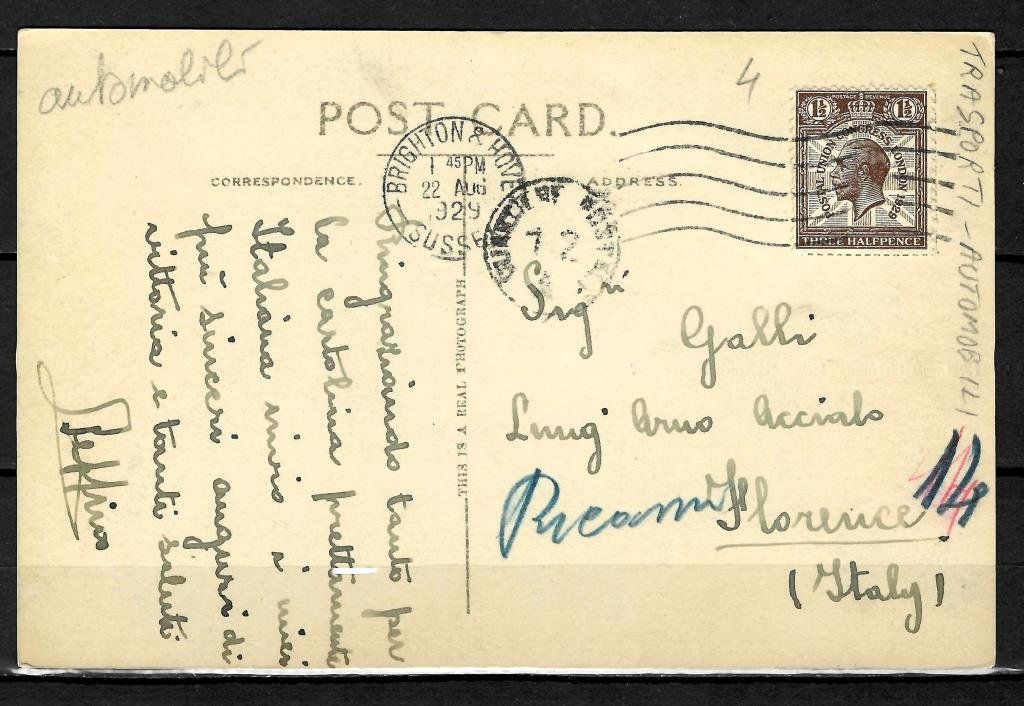 automobili
4
TRASPORTI - AUTOMOBILI
POST CARD.
CORRESPONDENCE.
ADDRESS.
BRIGHTON & HOVE
1 45 PM
22 AUG
1929
SUSSE
12
1½ POSTAGE & REVENUE 1½
POSTAL UNION CONGRESS LONDON 1929
THREE HALFPENCE
Ringraziando tanto per
la cartolina prettamente
Italiana invio i miei
più sinceri auguri di
vittoria e tanti saluti
Beppino
THIS IS A REAL PHOTOGRAPH
Sigri
Galli
Lung Arno Acciaolo
Florence
(Italy)